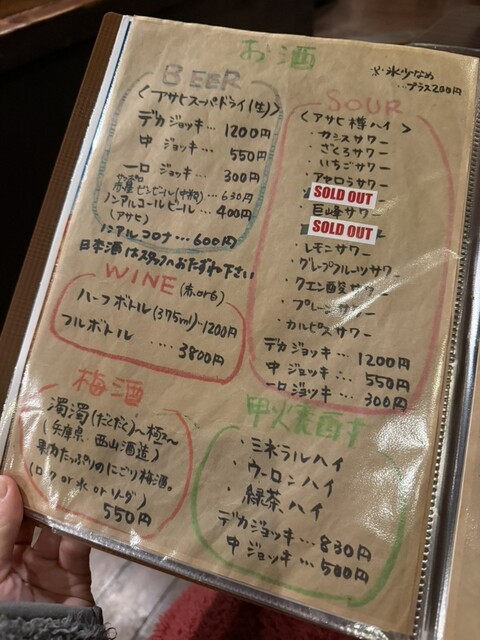 お酒
※氷少なめ
…プラス200円
BEER
〈アサヒスーパードライ(生)〉
デカ ジョッキ… 1200円
中 ジョッキ… 550円
一口 ジョッキ… 300円
サッポロ
赤星ビンビール(中瓶)…630円
ノンアルコールビール…400円
(アサヒ)
ノンアルコロナ…600円
日本酒はスタッフへおたずね下さい
WINE (赤or白)
ハーフボトル(375ml)…1200円
フルボトル …… 3800円
梅酒
濁濁(だくだく)〜極〜
(兵庫県 西山酒造)
果肉たっぷりのにごり梅酒。
(ロック or 水 or ソーダ)
550円
SOUR
〈アサヒ樽ハイ〉
・カシスサワー
・ざくろサワー
・いちごサワー
・アセロラサワー
SOLD OUT
巨峰サワー
SOLD OUT
・レモンサワー
・グレープフルーツサワー
・クエン酸サワー
・プレーンサワー
・カルピスサワー
デカ ジョッキ… 1200円
中 ジョッキ… 550円
一口 ジョッキ… 300円
甲火焼酎
・ミネラルハイ
・ウーロンハイ
・緑茶ハイ
デカジョッキ…830円
中 ジョッキ…500円